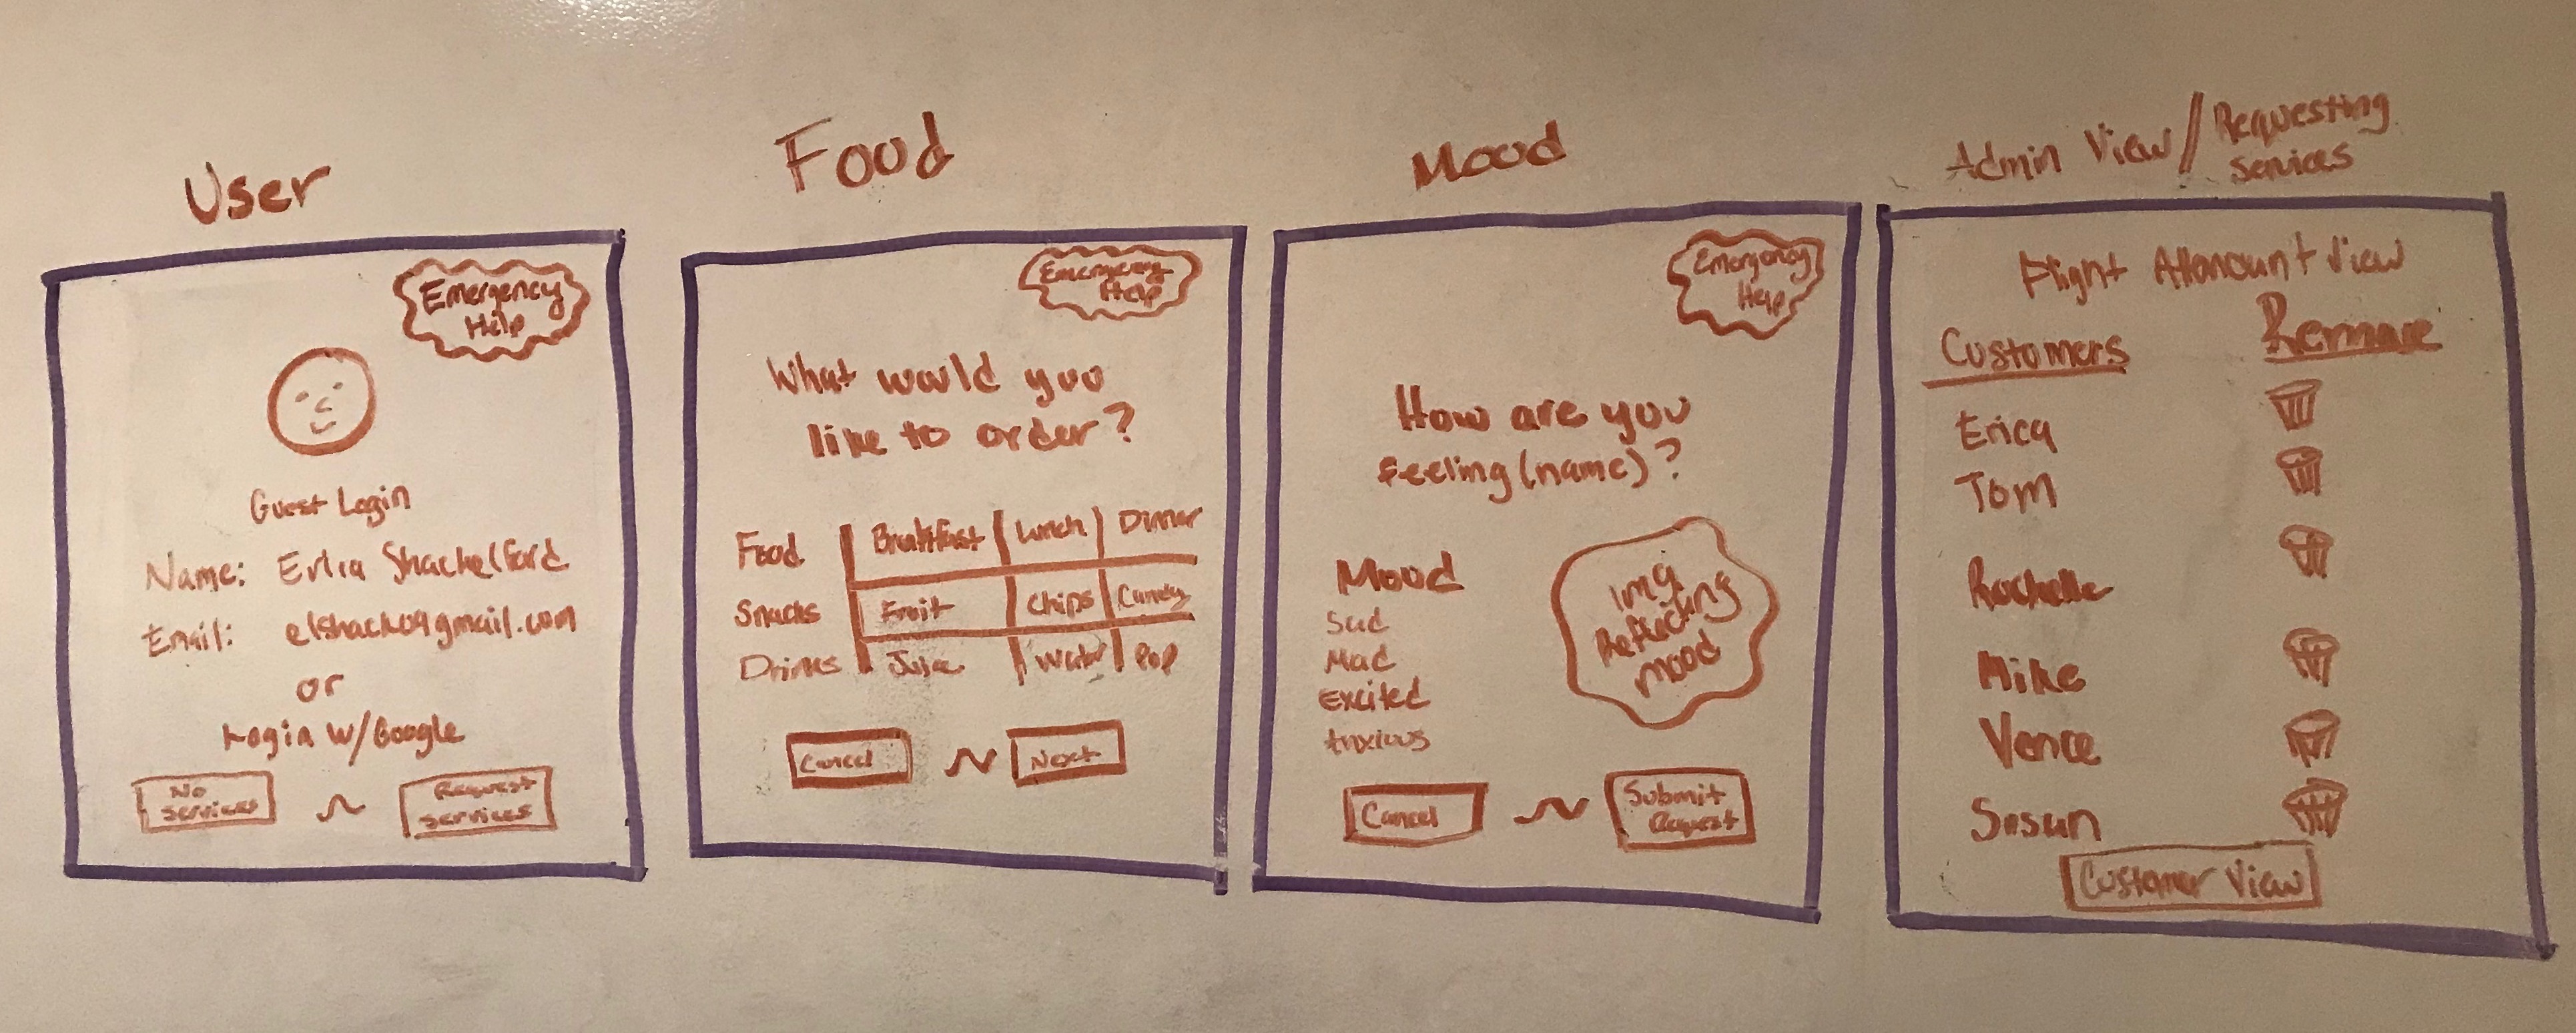 User
Emergency
Help
Guest Login
Name: Erica Shackelford
Email:
or
Login w/Google
No
Services
Request
Services
Food
Emergency
Help
What would you
like to order?
Food Breakfast Lunch Dinner
Snacks Fruit Chips Candy
Drinks Juice Water Pop
Cancel Next
Mood
Emergency
Help
How are you
feeling (name)?
Mood
Sad
Mad
Excited
Anxious
Img
Reflecting
mood
Cancel
Submit
Request
Admin View / Requesting
Services
Flight View
Customers Remove
Erica
Tom
Rochelle
Mike
Vence
Susun
Customer View